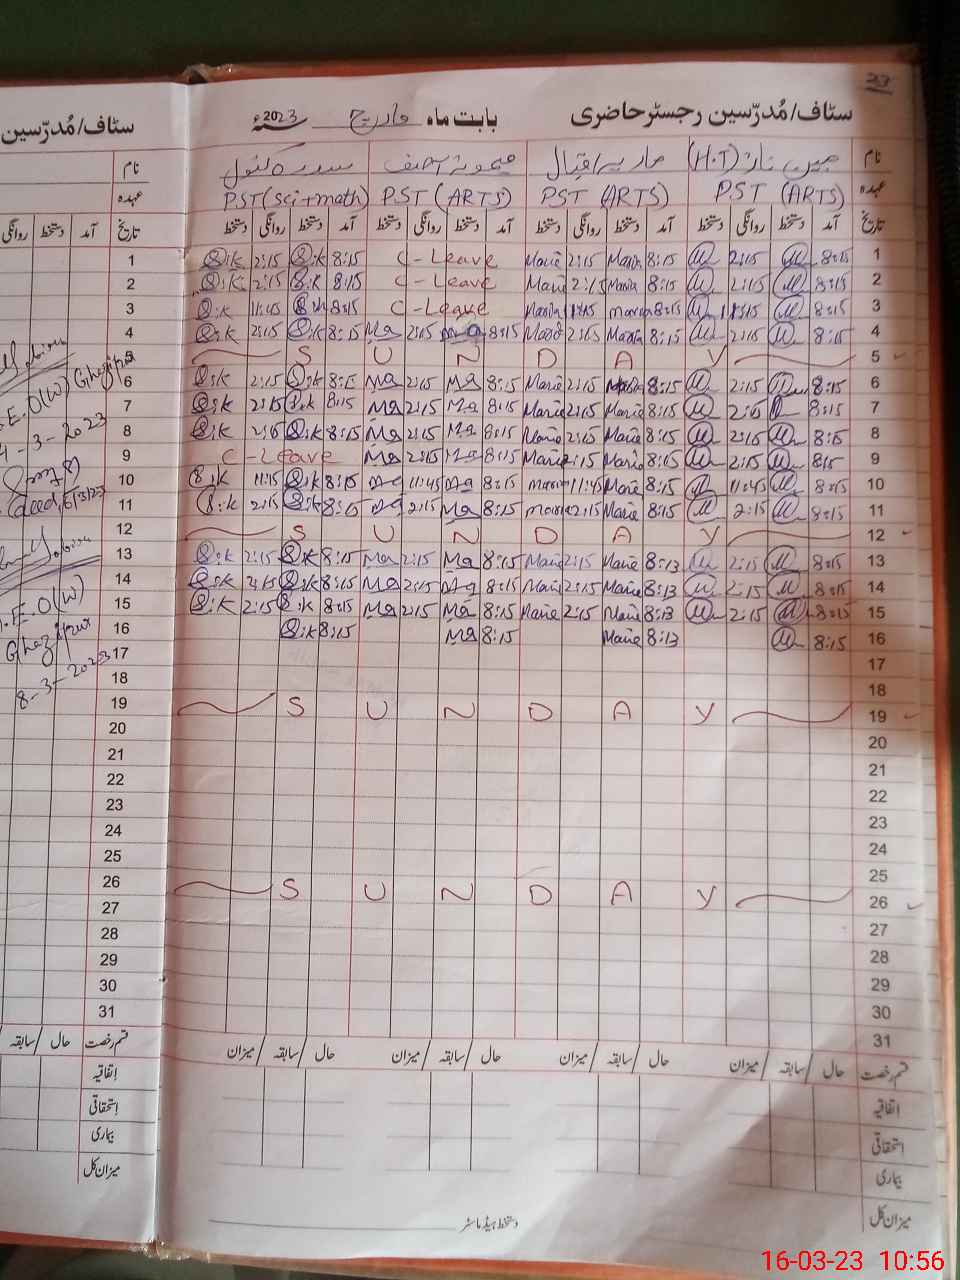 23
سٹاف/مُدرّسین رجسٹر حاضری بابت ماہ مارچ 2023ء
نام جبین ناز (H.T) ماریہ اقبال میمونہ آصف سدرہ کنول
عہدہ PST (ARTS) PST (ARTS) PST (ARTS) PST (sci+math)
تاریخ آمد دستخط روانگی دستخط آمد دستخط روانگی دستخط آمد دستخط روانگی دستخط آمد دستخط روانگی دستخط
1 8:15 2:15 8:15 Maria 2:15 Maria C-Leave 8:15 S:K 2:15 S:K
2 8:15 2:15 8:15 Maria 2:15 Maria C-Leave 8:15 S:K 2:15 S:K
3 8:15 11:45 8:15 Maria 11:45 Maria C-Leave 8:15 S:K 11:45 S:K
4 8:15 2:15 8:15 Maria 2:15 Maria 8:15 Ma 2:15 Ma 8:15 S:K 2:15 S:K
5 SUNDAY
6 8:15 2:15 8:15 Maria 2:15 Maria 8:15 Ma 2:15 Ma 8:15 S:K 2:15 S:K
7 8:15 2:15 8:15 Maria 2:15 Maria 8:15 Ma 2:15 Ma 8:15 S:K 2:15 S:K
8 8:15 2:15 8:15 Maria 2:15 Maria 8:15 Ma 2:15 Ma 8:15 S:K 2:15 S:K
9 8:15 2:15 8:15 Maria 2:15 Maria 8:15 Ma 2:15 Ma C-Leave
10 8:15 11:45 8:15 Maria 11:45 Maria 8:15 Ma 11:45 Ma 8:15 S:K 11:15 S:K
11 8:15 2:15 8:15 Maria 2:15 Maria 8:15 Ma 2:15 Ma 8:15 S:K 2:15 S:K
12 SUNDAY
13 8:15 2:15 8:13 Maria 2:15 Maria 8:15 Ma 2:15 Ma 8:15 S:K 2:15 S:K
14 8:15 2:15 8:13 Maria 2:15 Maria 8:15 Ma 2:15 Ma 8:15 S:K 2:15 S:K
15 8:15 2:15 8:13 Maria 2:15 Maria 8:15 Ma 2:15 Ma 8:15 S:K 2:15 S:K
16 8:15 8:13 Maria 8:15 Ma 8:15 S:K
17
18
19 SUNDAY
20
21
22
23
24
25
26 SUNDAY
27
28
29
30
31
قسم رخصت حال / سابقہ / میزان حال / سابقہ / میزان حال / سابقہ / میزان حال / سابقہ / میزان
اتفاقیہ
استحقاقی
بیماری
میزان کل
دستخط ہیڈ ماسٹر
سٹاف/مُدرّسین
نام
عہدہ
تاریخ آمد دستخط روانگی
1
2
3
4
5
6
7
8
9
10
11
12
13
14
15
16
17
18
19
20
21
22
23
24
25
26
27
28
29
30
31
E.O(W) Ghazipur
4-3-2023
E.O(W)
Ghazipur
8-3-2023
قسم رخصت حال / سابقہ /
اتفاقیہ
استحقاقی
بیماری
میزان کل
16-03-23 10:56